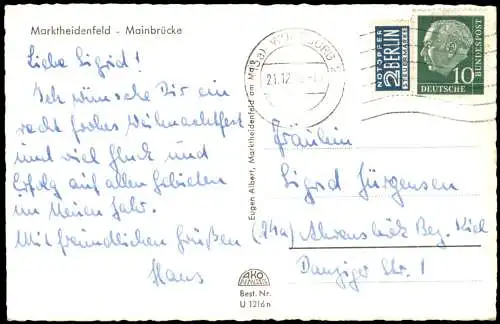 Marktheidenfeld - Mainbrücke
Liebe Sigrid!
Ich wünsche Dir ein
recht frohes Weihnachtsfest
und viel Glück und
Erfolg auf allen Gebieten
im Neuen Jahr.
Mit freundlichen Grüßen
Hans
Eugen Albert, Marktheidenfeld am Main
AKO
Best. Nr.
U 1216n
WÜRZBURG 2
21.12.
NOTOPFER
2 BERLIN
STEUERMARKE
DEUTSCHE BUNDESPOST
10
Fräulein
Sigrid Jürgensen
(24a) Ahrensbök Bez. Kiel
Danziger Str. 1